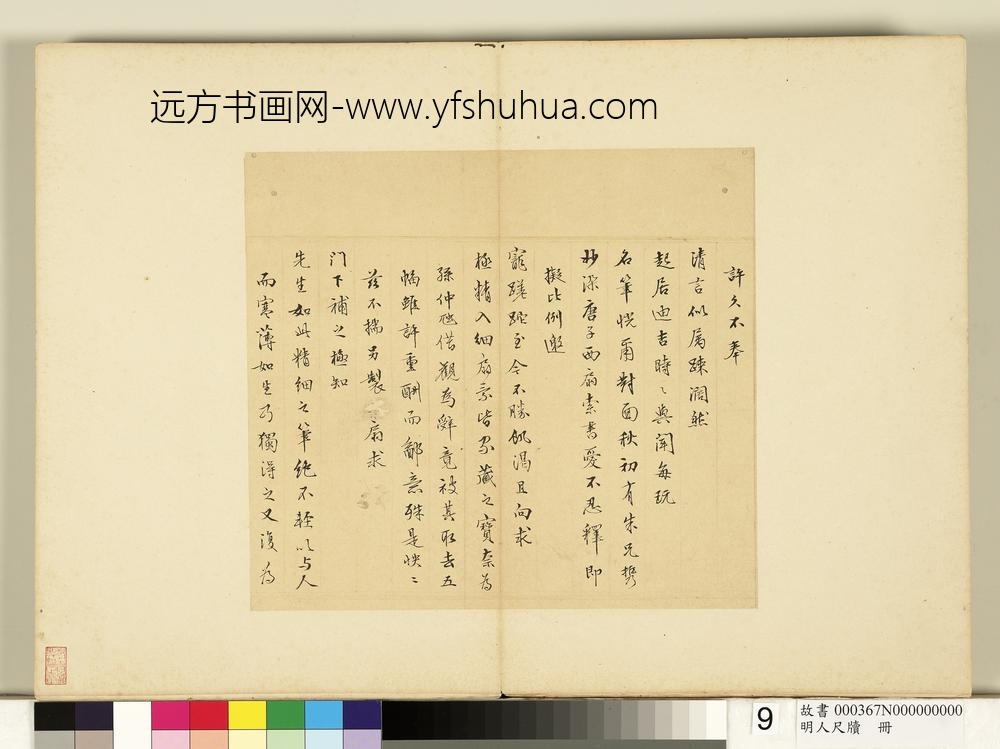 远方书画网-www.yfshuhua.com
許久不奉
清言似属疎闊然
起居迪吉時々與聞每玩
名筆恍爾對面秋初有朱兄携
妙染唐子西扇索書愛不忍釋即
擬比例邀
寵蹉跎至今不勝飢渴且向求
極精入細扇景皆家藏之寶奈為
孫仲借觀為辭竟被其取去五
幅雖許重酬而鄙意殊是怏〻
茲不揣另製扇求
门下補之極知
先生如此精細之筆絶不輕以与人
而寒薄如生乃獨得之又復為
9
故書 000367N000000000
明人尺牘 冊